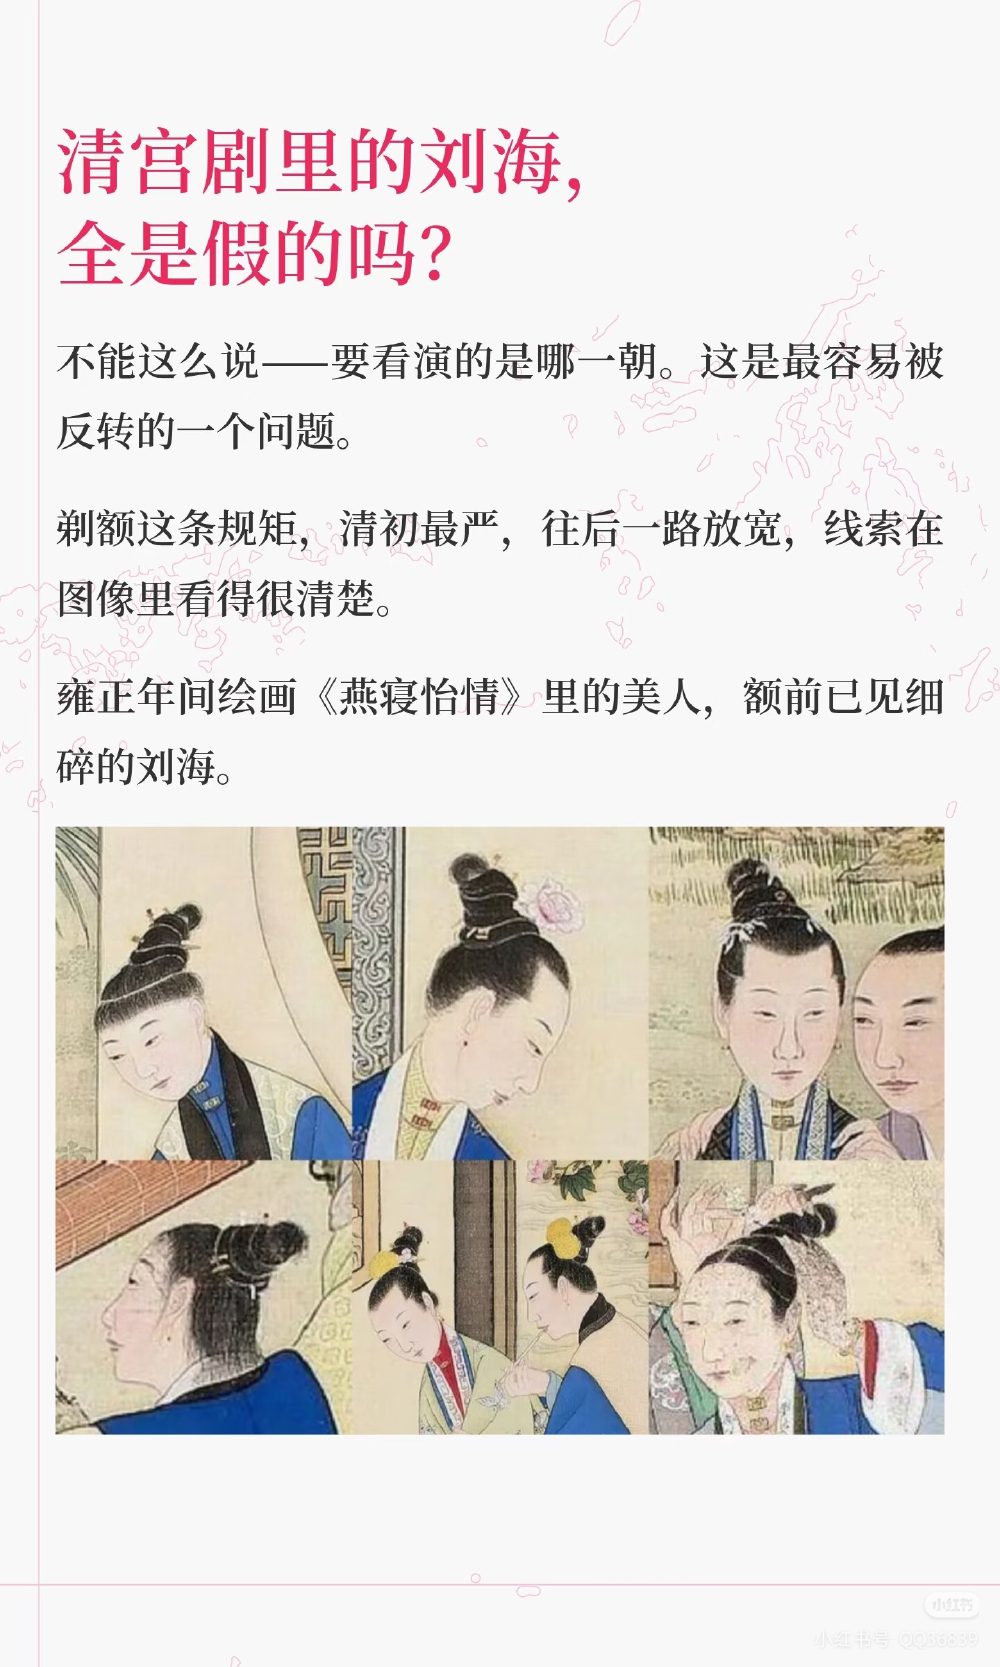 清宫剧里的刘海，
全是假的吗？
不能这么说——要看演的是哪一朝。这是最容易被
反转的一个问题。
剃额这条规矩，清初最严，往后一路放宽，线索在
图像里看得很清楚。
雍正年间绘画《燕寝怡情》里的美人，额前已见细
碎的刘海。
小红书
小红书号 QQ36839